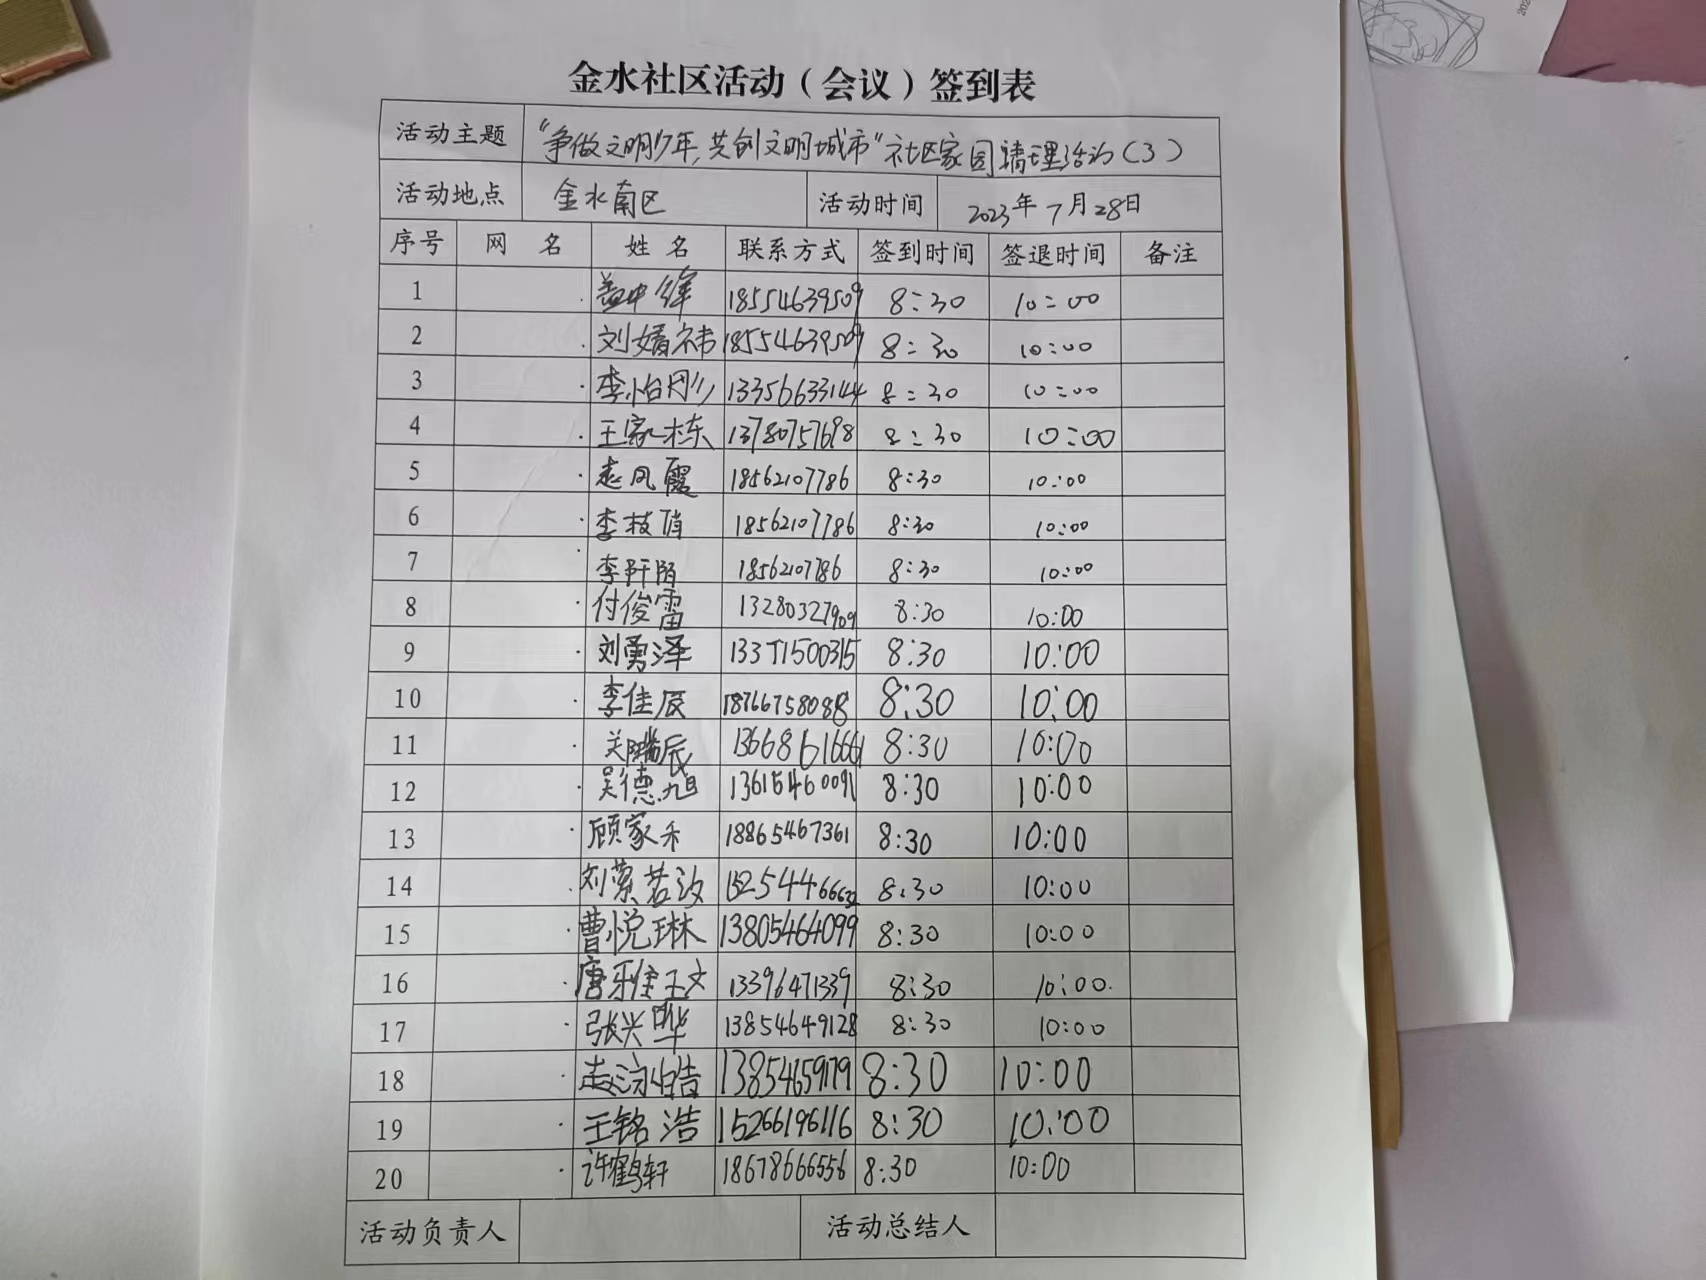 金水社区活动（会议）签到表
活动主题 “争做文明少年,共创文明城市”社区家园清理活动（3）
活动地点 金水南区 活动时间 2023年7月28日
序号 网 名 姓 名 联系方式 签到时间 签退时间 备注
1 18554639509 8:30 10:00
2 刘婧祎 18554639509 8:30 10:00
3 李怡彤 13356633144 8:30 10:00
4 王家栋 13780757698 8:30 10:00
5 赵凤霞 18562107786 8:30 10:00
6 李 18562107786 8:30 10:00
7 李阡陌 18562107786 8:30 10:00
8 付俊雷 13280327909 8:30 10:00
9 刘勇泽 13371500315 8:30 10:00
10 李佳辰 18766758088 8:30 10:00
11 关瑞辰 13668616661 8:30 10:00
12 吴德旭 13615460091 8:30 10:00
13 顾家禾 18865467361 8:30 10:00
14 刘萦若汐 8:30 10:00
15 曹悦琳 13805464099 8:30 10:00
16 唐雅雯 13396471339 8:30 10:00.
17 张兴晔 13854649128 8:30 10:00
18 赵泳皓 13854659179 8:30 10:00
19 王铭浩 15266196116 8:30 10:00
20 许鹤轩 18678666556 8:30 10:00
活动负责人 活动总结人